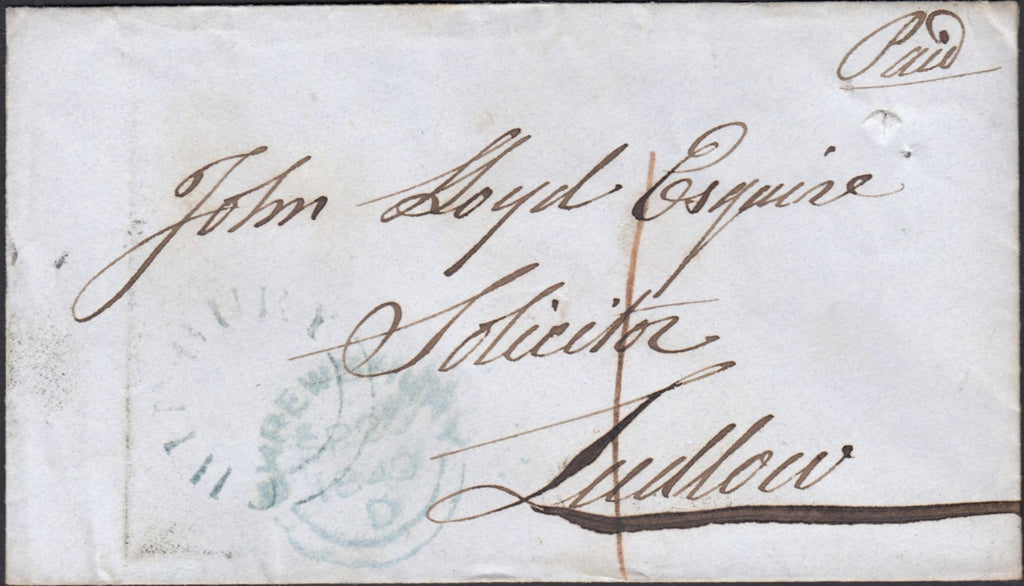 Paid
John Lloyd Esquire
Solicitor
Ludlow
SHREWSBURY
1840
D